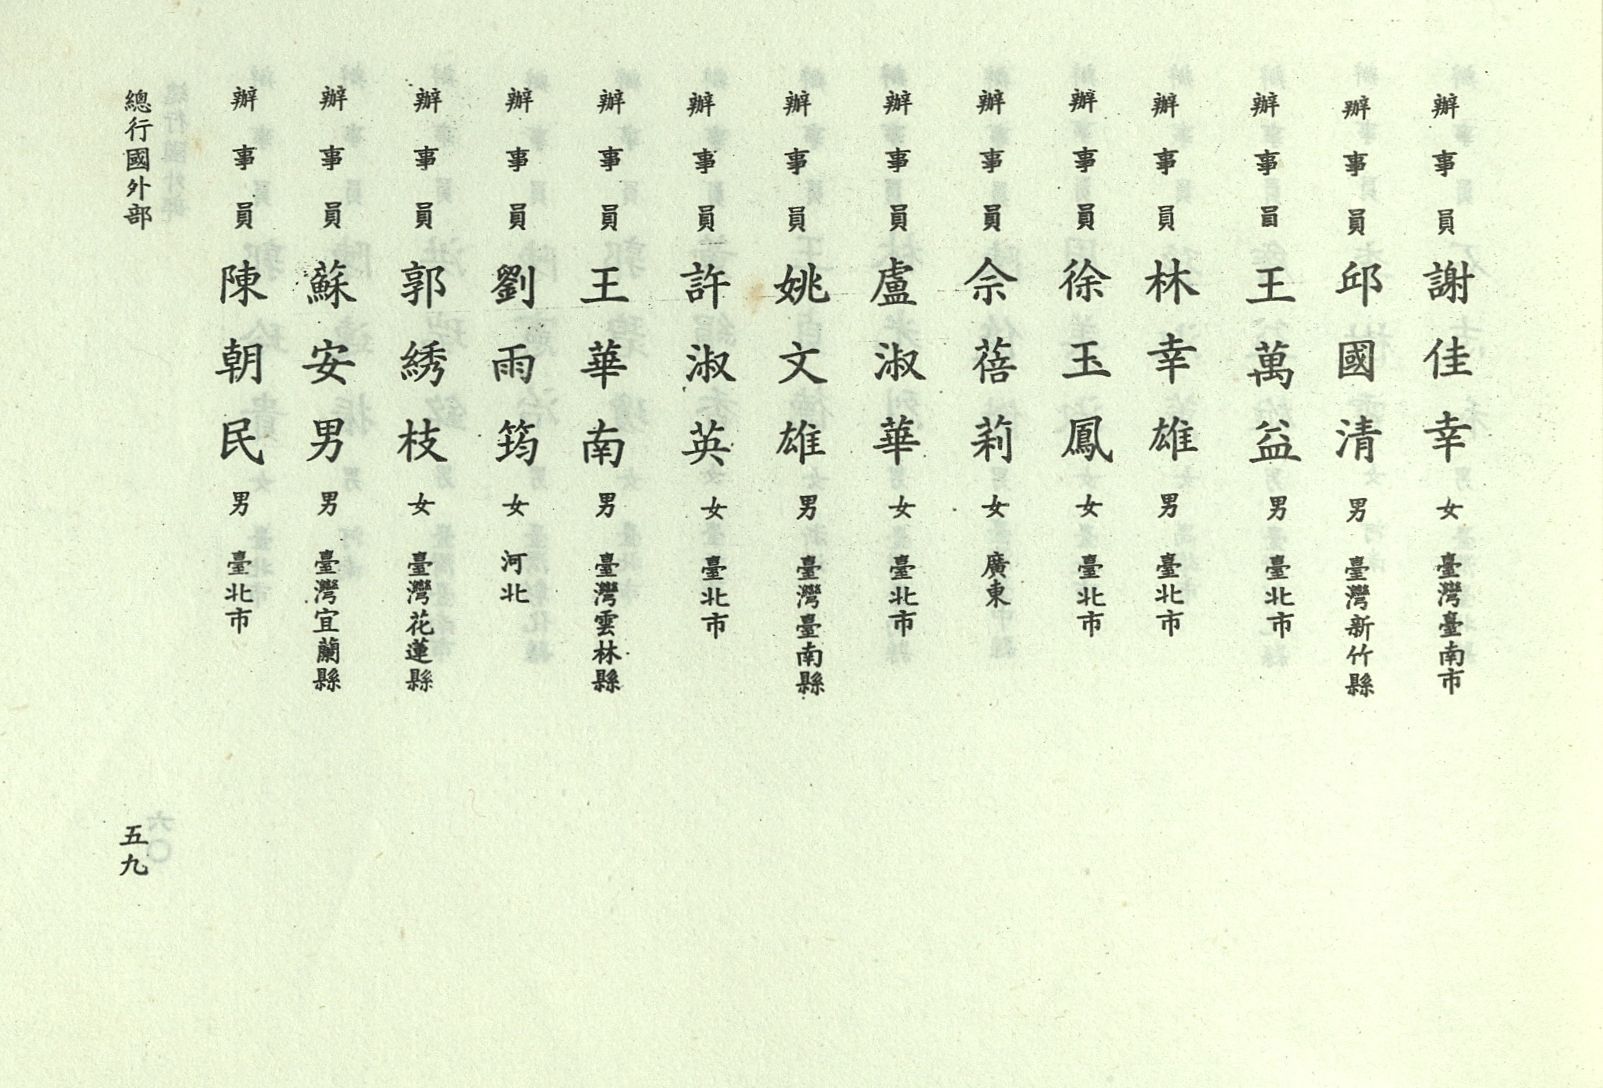 辦事員謝佳幸女臺灣臺南市
辦事員邱國清男臺灣新竹縣
辦事員王萬益男臺北市
辦事員林幸雄男臺北市
辦事員徐玉鳳女臺北市
辦事員佘蓓莉女廣東
辦事員盧淑華女臺北市
辦事員姚文雄男臺灣臺南縣
辦事員許淑英女臺北市
辦事員王華南男臺灣雲林縣
辦事員劉雨筠女河北
辦事員郭綉枝女臺灣花蓮縣
辦事員蘇安男男臺灣宜蘭縣
辦事員陳朝民男臺北市
總行國外部
五九